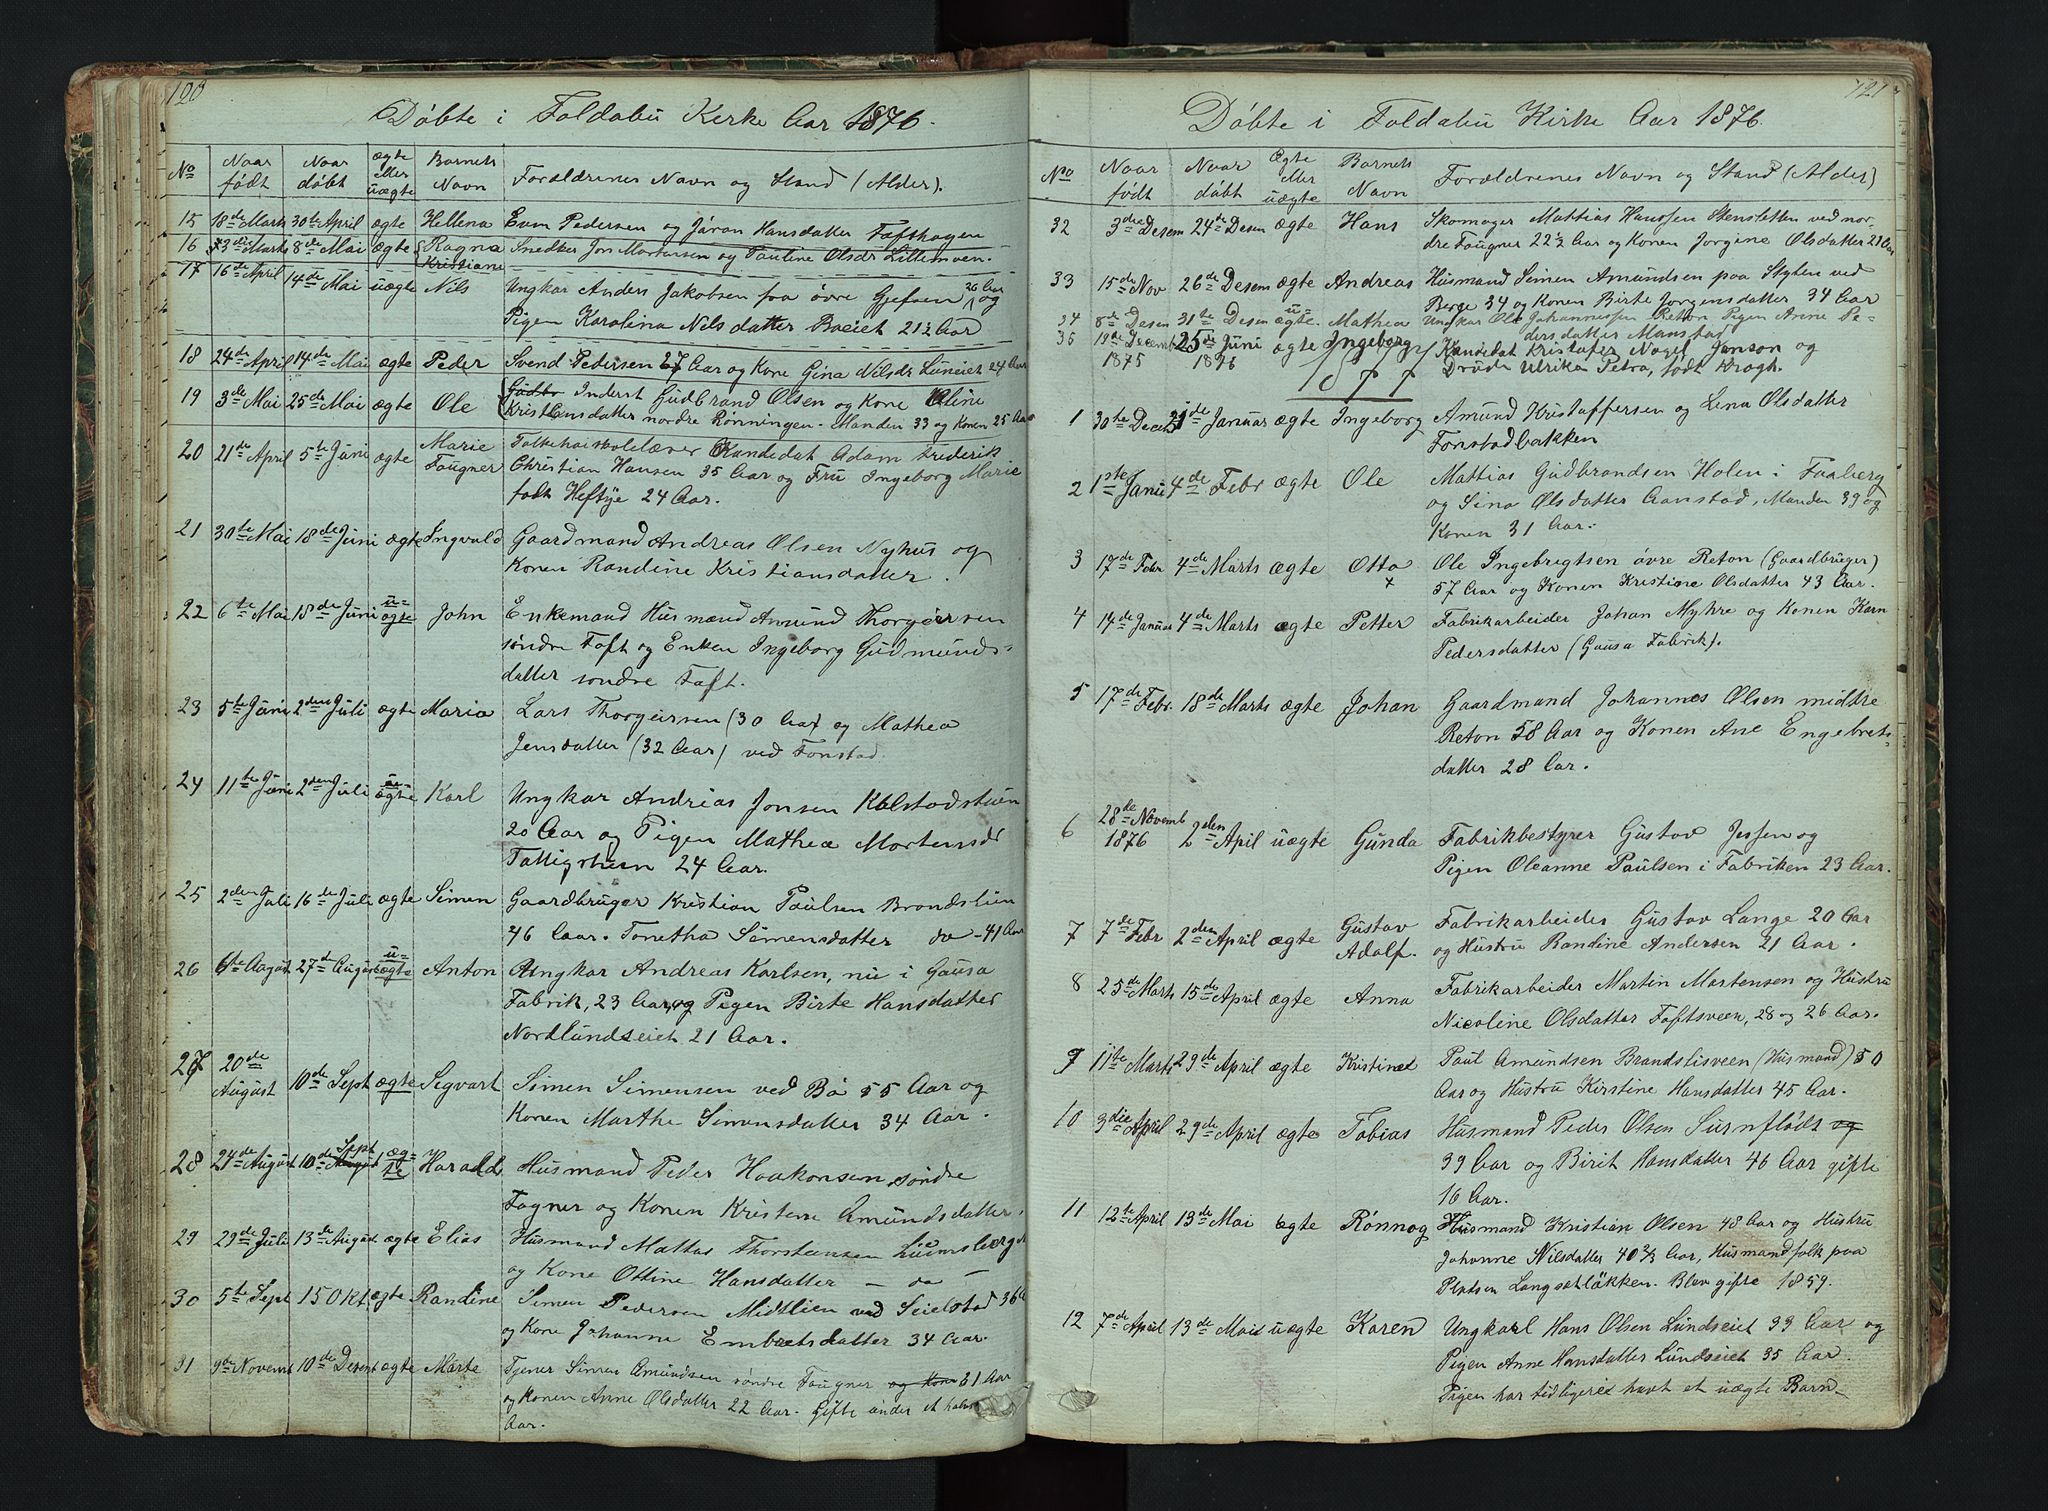 120
Döbte i Foldabu Kerke Aar 1876.
No Naar födt Naar döbt ægte eller uægte Barnets Navn Forældrenes Navn og Stand (Alder).
15 18de Marts 30te April ægte Hellena Even Pedersen og Jöran Hansdatter Tofthagen
16 23die Marts 8de Mai ægte Ragna Kristiane Snedker Jon Mortensen og Pauline Olsdr Lillemoen.
17 16de April 14de Mai uægte Nils Ungkar Anders Jakobsen fra övre Gjefsen 26 Aar og
Pigen Karolina Nilsdatter Boeiet 21½ Aar
18 24de April 14de Mai ægte Peder Svend Pedersen 27 Aar og Kone Gina Nilsdr Luneiet 24 Aar
19 3de Mai 25de Mai ægte Ole Inderst Gudbrand Olsen og Kone Oline
Kristiansdatter nordre Rönningen. Manden 33 og Konen 25 Aar
20 21de April 5te Juni ægte Marie Faugner Folkehoiskolelærer Kandidat Adam Frederik
Christian Hansen 35 Aar og Fru Ingeborg Marie
født Heftye 24 Aar.
21 30te Mai 18de Juni ægte Ingvald Gaardmand Andreas Olsen Nyhus og
Konen Randine Kristiansdatter.
22 6te Mai 18de Juni u-ægte John Enkemand Husmænd Amund Thorgersen
söndre Toft og Enken Ingeborg Gudmunds-
datter söndre Toft.
23 5te Juni 2den Juli ægte Maria Lars Thorgersen (30 Aar) og Mathea
Jensdatter (32 Aar) ved Fonstad.
24 11te Juni 2den Juli u-ægte Karl Ungkar Andrias Jonsen Kolstadstuen
20 Aar og Pigen Mathea Mortensdr
24 Aar.
25 2den Juli 16de Juli ægte Simen Gaardbruger Kristian Paulsen Brandslien
46 Aar. Tonetha Simensdatter do - 41 Aar
26 6te August 27de August u-ægte Anton Ungkar Andreas Karlsen, nu i Gausa
Fabrik, 23 Aar og Pigen Birte Hansdatter
Nordlundseiet 21 Aar.
27 20de August 10de Sept ægte Segvart Simen Simensen ved Bö 55 Aar og
Konen Marthe Simensdatter 34 Aar.
28 24de August 10de Sept ægte Harald Husmand Peder Haakonsen söndre
Fogner og Konen Kristene Amundsdatter.
29 29de Juli 13de August ægte Elias Husmand Mattas Thorstensen Luensberg
og Kone Ottine Hansdatter — do —
30 5te Sept 15 Okt. ægte Randine Simen Pedersen Midtlien ved Seielstad 36
og Kone Johanne Embretsdatter 34 Aar.
31 9de Novemb 10de Desemb ægte Marte Tjener Simen Amundsen söndre Faugner og Kone 21 Aar
og Konen Anne Olsdatter 22 Aar. Gifte under et halvt
Aar.
121
Döbte i Foldabu Kirke Aar 1876.
No Naar födt Naar döbt Ægte eller uægte Barnets Navn Forældrenes Navn og Stand (Alder)
32 3de Desem 24de Desem ægte Hans Skomager Mattias Hanssen Stensletten ved nor-
dre Faugner 22½ Aar og Konen Jorgine Olsdatter 21 Aar
33 15de Nov 26de Desem ægte Andreas Husmand Simen Amundsen paa Stylen ved
Berge 34 og Konen Birte Jorgensdatter 34 Aar
34 8de Desem 31te Desem u-ægte. Mathea Ungkar Ole Johannessen Reton Pigen Anne Pe-
dersdatter Manstad
35 19de Decemb 1875 25de Juni 1876 ægte Ingeborg Kandidat Kristofer Nagel Janson og
Drude Ulrika Petra, född Krogh.
1877
1 30te Decem 21de Januar ægte Ingeborg Amund Kristoffersen og Lena Olsdatter
Fonstadbakken
2 1ste Janu 4de Febr ægte Ole Mattias Gudbrandsen Holen i Faaberg
og Sina Olsdatter Aanstad, Manden 39 og
Konen 31 Aar.
3 17de Febr 4de Marts ægte Otto Ole Ingebregtsen övre Reton (Gaardbruger)
57 Aar og Konen Kristine Olsdatter 43 Aar.
4 14de Januar 4de Marts ægte Petter Fabrikarbeider Johan Myhre og Konen Karn
Pedersdatter (Gausa Fabrik).
5 17de Febr. 18de Marts ægte Johan Gaardmand Johannes Olsen midtre
Reton 58 Aar og Konen Ane Engebrets-
datter 28 Aar.
6 28de Novemb 1876 2den April uægte Gunda Fabrikbestyrer Gustav Jessen og
Pigen Oleanne Paulsen i Fabriken 23 Aar.
7 7de Febr 2den April ægte Gustav Adolf. Fabrikarbeider Gustav Lange 20 Aar
og Hustru Randine Andersen 21 Aar.
8 25de Marts 15de April ægte Anna Fabrikarbeider Martin Mortensen og Hustru
Nicoline Olsdatter Toftsveen, 28 og 26 Aar.
9 11te Marts 29de April ægte Kristine Paul Amundsen Brandslisveen (Husmand) 50
Aar og Hustru Kirstine Hansdatter 45 Aar.
10 3die April 29de April ægte Tobias Husmand Peder Olsen Surnflödt og
39 Aar og Birit Hansdatter 46 Aar gifte
16 Aar.
11 12te April 13de Mai ægte Rönnog Husmand Kristian Olsen 48 Aar og Hustru
Johanne Nilsdatter 40 ⅔ Aar, Husmandfolk paa
Pladsen Langsætlökken. Blev gifte 1859.
12 7de April 13de Mai uægte Karen Ungkarl Hans Olsen Lundseiet 39 Aar og
Pigen Anne Hansdatter Lundseiet 35 Aar.
Pigen har tidligere havt et uægte Barn